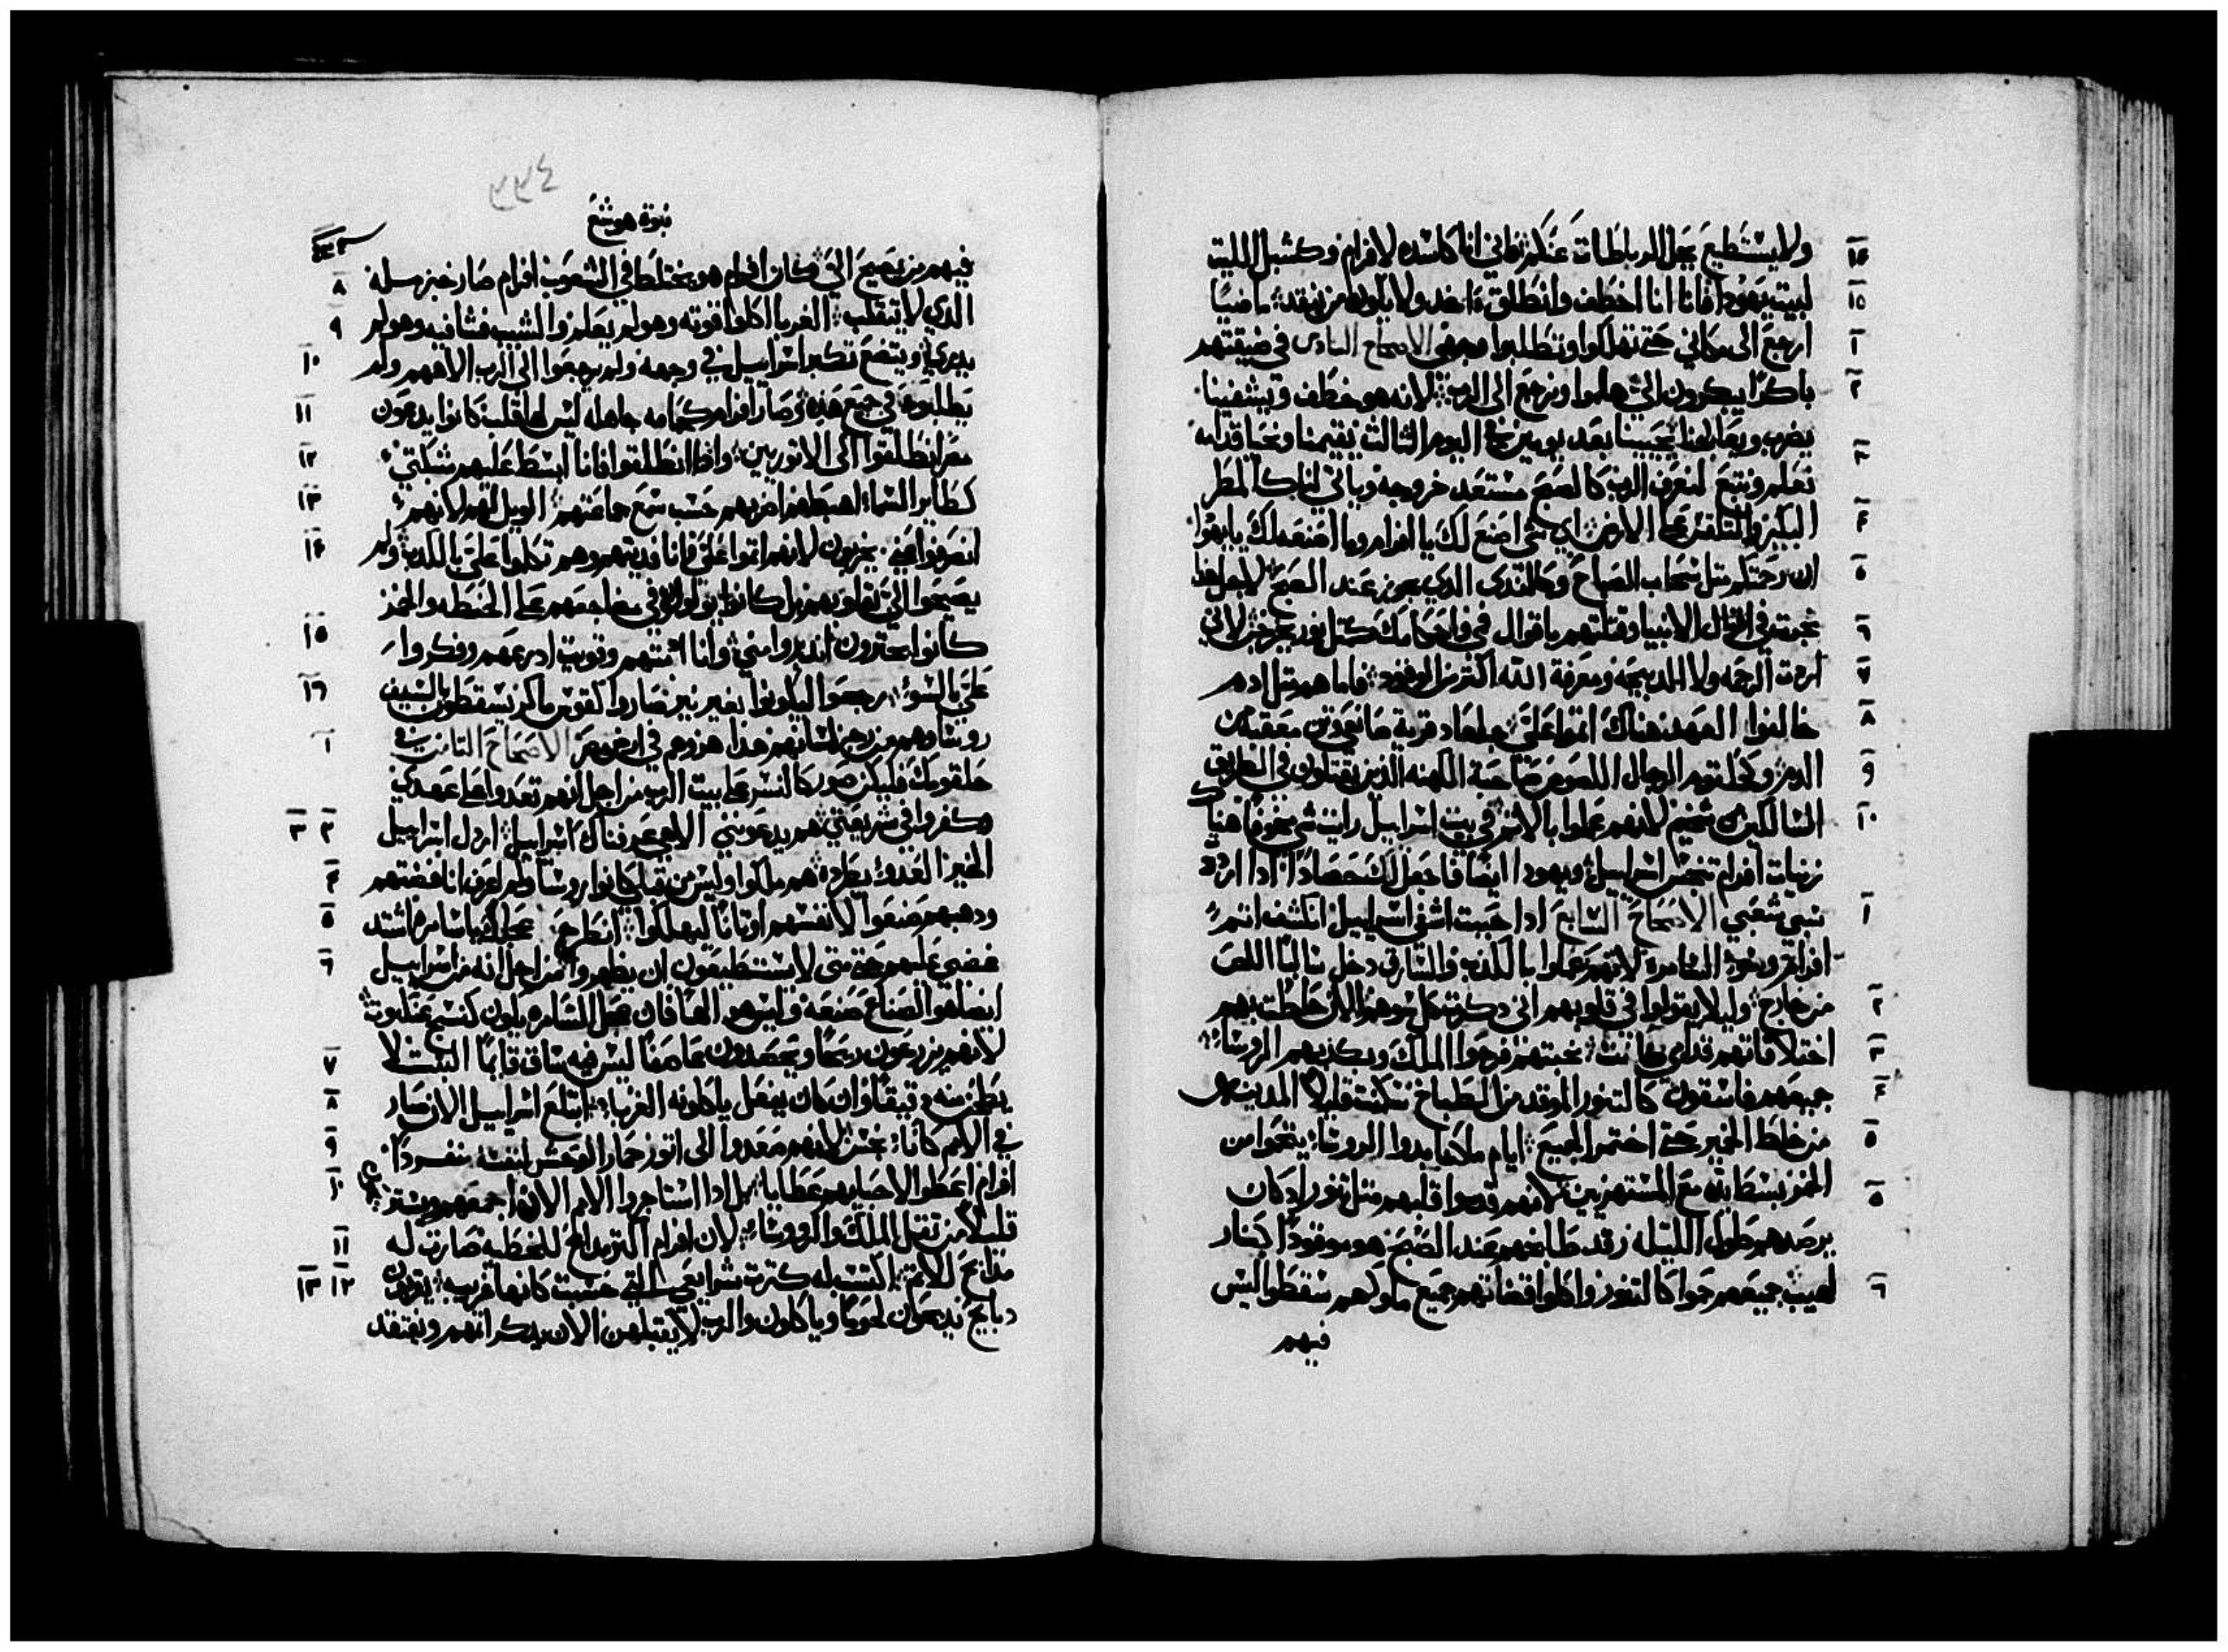 ولا يستطيع يحل الرباطات عنكم فاني انا كاسده لافرام وكشبل الليت
لبيت يهودا فانا انا اخطف وانطلق اخد ولا يكون من ينقد ماضيا
ارجع الى مكاني حتى تهلكوا وتطلبوا وجهي الاصحاح السادس في ضيقتهم
باكرا يبكرون الي هلموا ونرجع الى الرب لانه هو خطف ويشفينا
يضرب ويعالجنا يحيينا بعد يومين في اليوم الثالث يقيمنا ونحيا قدامه
نعلم ونتبع لنعرف الرب كالصبح مستعد خروجه وياتي لنا كالمطر
البكير والمتلقس على الارض اي شي اصنع لك يا افرام وما اصنع لك يا يهودا
ان رحمتكم مثل سحاب الصباح وكالندى الدي يجوز عند الصبح لاجل هدا
نجرت في الانبيا وقتلتهم باقوال في واحكامك كمثل نور تخرج لاني
اردت الرحمه ولا الدبيحه ومعرفة الله اكتر من الوقود فاما هم متل ادم
خالفوا العهد هناك اتموا علي جلعاد قرية صانعي وتن معقبة من
الدم وكحلقوم الرجال اللصوص صاحبة الكهنه الدين يقتلون في الطريق
السالكين من شخيم لانهم عملوا بالاتم في بيت اسراييل رايت شي مخوفا هناك
زنيات افرام تنجس اسراييل ويهودا ايضا فاجعل لك حصادا ادا اردد
سبي شعبي الاصحاح السابع ادا حببت اشفي اسراييل انكشف اتم
افرام وسو السامره لانهم عملوا بالكدب والسارق دخل سالبا اللص
من خارج وليلا يقولوا في قلوبهم اني دكرت كل سوهم الان حاطت بهم
اختلاقاتهم قدامي كانت بخبتهم فرحوا الملك وبكدبهم الروسا
جميعهم فاسقون كالتنور الموقد من الطباخ سكتت قليلا المدينه
من خلط الخمير حتى اختمر الجميع ايام ملكنا بدوا الروسا يتقوا من
الخمر بسط يده مع المستهزين لانهم قدموا قلبهم متل تنور اد كان
يرصدهم طول الليله رقد طابخهم عند الصبح هو موقودا كنار
لهيب جميعهم حموا كالتنور واكلوا قضاتهم جميع ملوكهم سقطوا ليس
فيهم
٣٣٤
نبوة هوشع
فيهم من يصيح الي وكان افرام هو يختلط في الشعوب افرام صار خبز مله
الدي لا يتقلب الغربا اكلوا قوته وهو لم يعلم والشيب فشا فيه وهو لم
يدري ويتضع تكبر اسراييل في وجهه ولم يرجعوا الى الرب الاههم ولم
يطلبوه في جميع هده وصار افرام كحمامه جاهله ليس لها قلب كانوا يدعون
مصر انطلقوا الى الاتوريين وادا انطلقوا فانا ابسط عليهم شبكتي
كطاير السما اهبطهم اضربهم حسب سمع جماعتهم الويل لهم لانهم
انصرفوا عني يخربون لانهم اتموا علي فانا فديتهم وهم تكلموا علي بالكدب ولم
يصيحوا الي بقلوبهم بل كانوا يولولون في مضاجعهم على الحنطه والخمر
كانوا يجترون ابتعدوا مني وانا ادبتهم وقويت ادرعهم وفكروا
علي بالسو رجعوا ليكونوا بغير نير صاروا كقوس ماكر يسقطون بالسيف
روساوهم من رجز لسانهم هدا هزوهم في ارض مصر الاصحاح التامن في
حلقومك فليكن صور كالنسر على بيت الرب من اجل انهم تعدوا على عهدي
وكفروا في شريعتي هم يدعونني الاهي عرفناك اسراييل اردل اسراييل
الخير العدو يطرده هم ملكوا وليس من قبلي كانوا روسا ولم اعرف انا فضتهم
ودهبهم صنعوا لانفسهم اوتانا ليهلكوا انطرح عجلك يا سامره اشتد
غضبي عليهم حتى متى لا يستطيعون ان يطهروا من اجل انه من اسراييل
ايضا هو الصناع صنعه وليس هو الها فان عجل السامره يكون كنسج عنكبوت
لانهم يزرعون ريحا ويحصدون عاصفا ليس فيه ساق قايما النبت لا
يطحن منه دقيقا وان كان يفعل ياكلونه الغربا ابتلع اسراييل الان صار
في الامم كانا نجس لانهم صعدوا الى اتور حمار الوحش لنفسه منفردا
افرام اعطوا لاحبابهم عطايا بل ادا استاجروا الامم الان اجمعهم ويستريحون
قليلا من تقل الملك والروسا لان افرام اكتر مدابح للخطيه صارت له
مدابح للاتم اكتب له كترت شرايعي التي حسبت كانها غريبه يقربون
دبايح يدبحون لحوما وياكلون والرب لا يقبلهن الان يدكر اتمهم ويفتقد